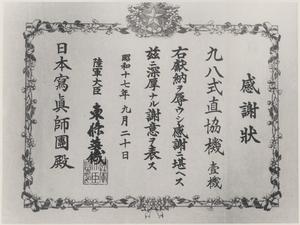 感謝狀
九八式直協機 壹機
右献納ヲ辱ウシ感謝ニ堪ヘス
茲ニ深厚ナル謝意ヲ表ス
昭和十六年九月二十日
陸軍大臣 東條英機
日本寫眞師團殿